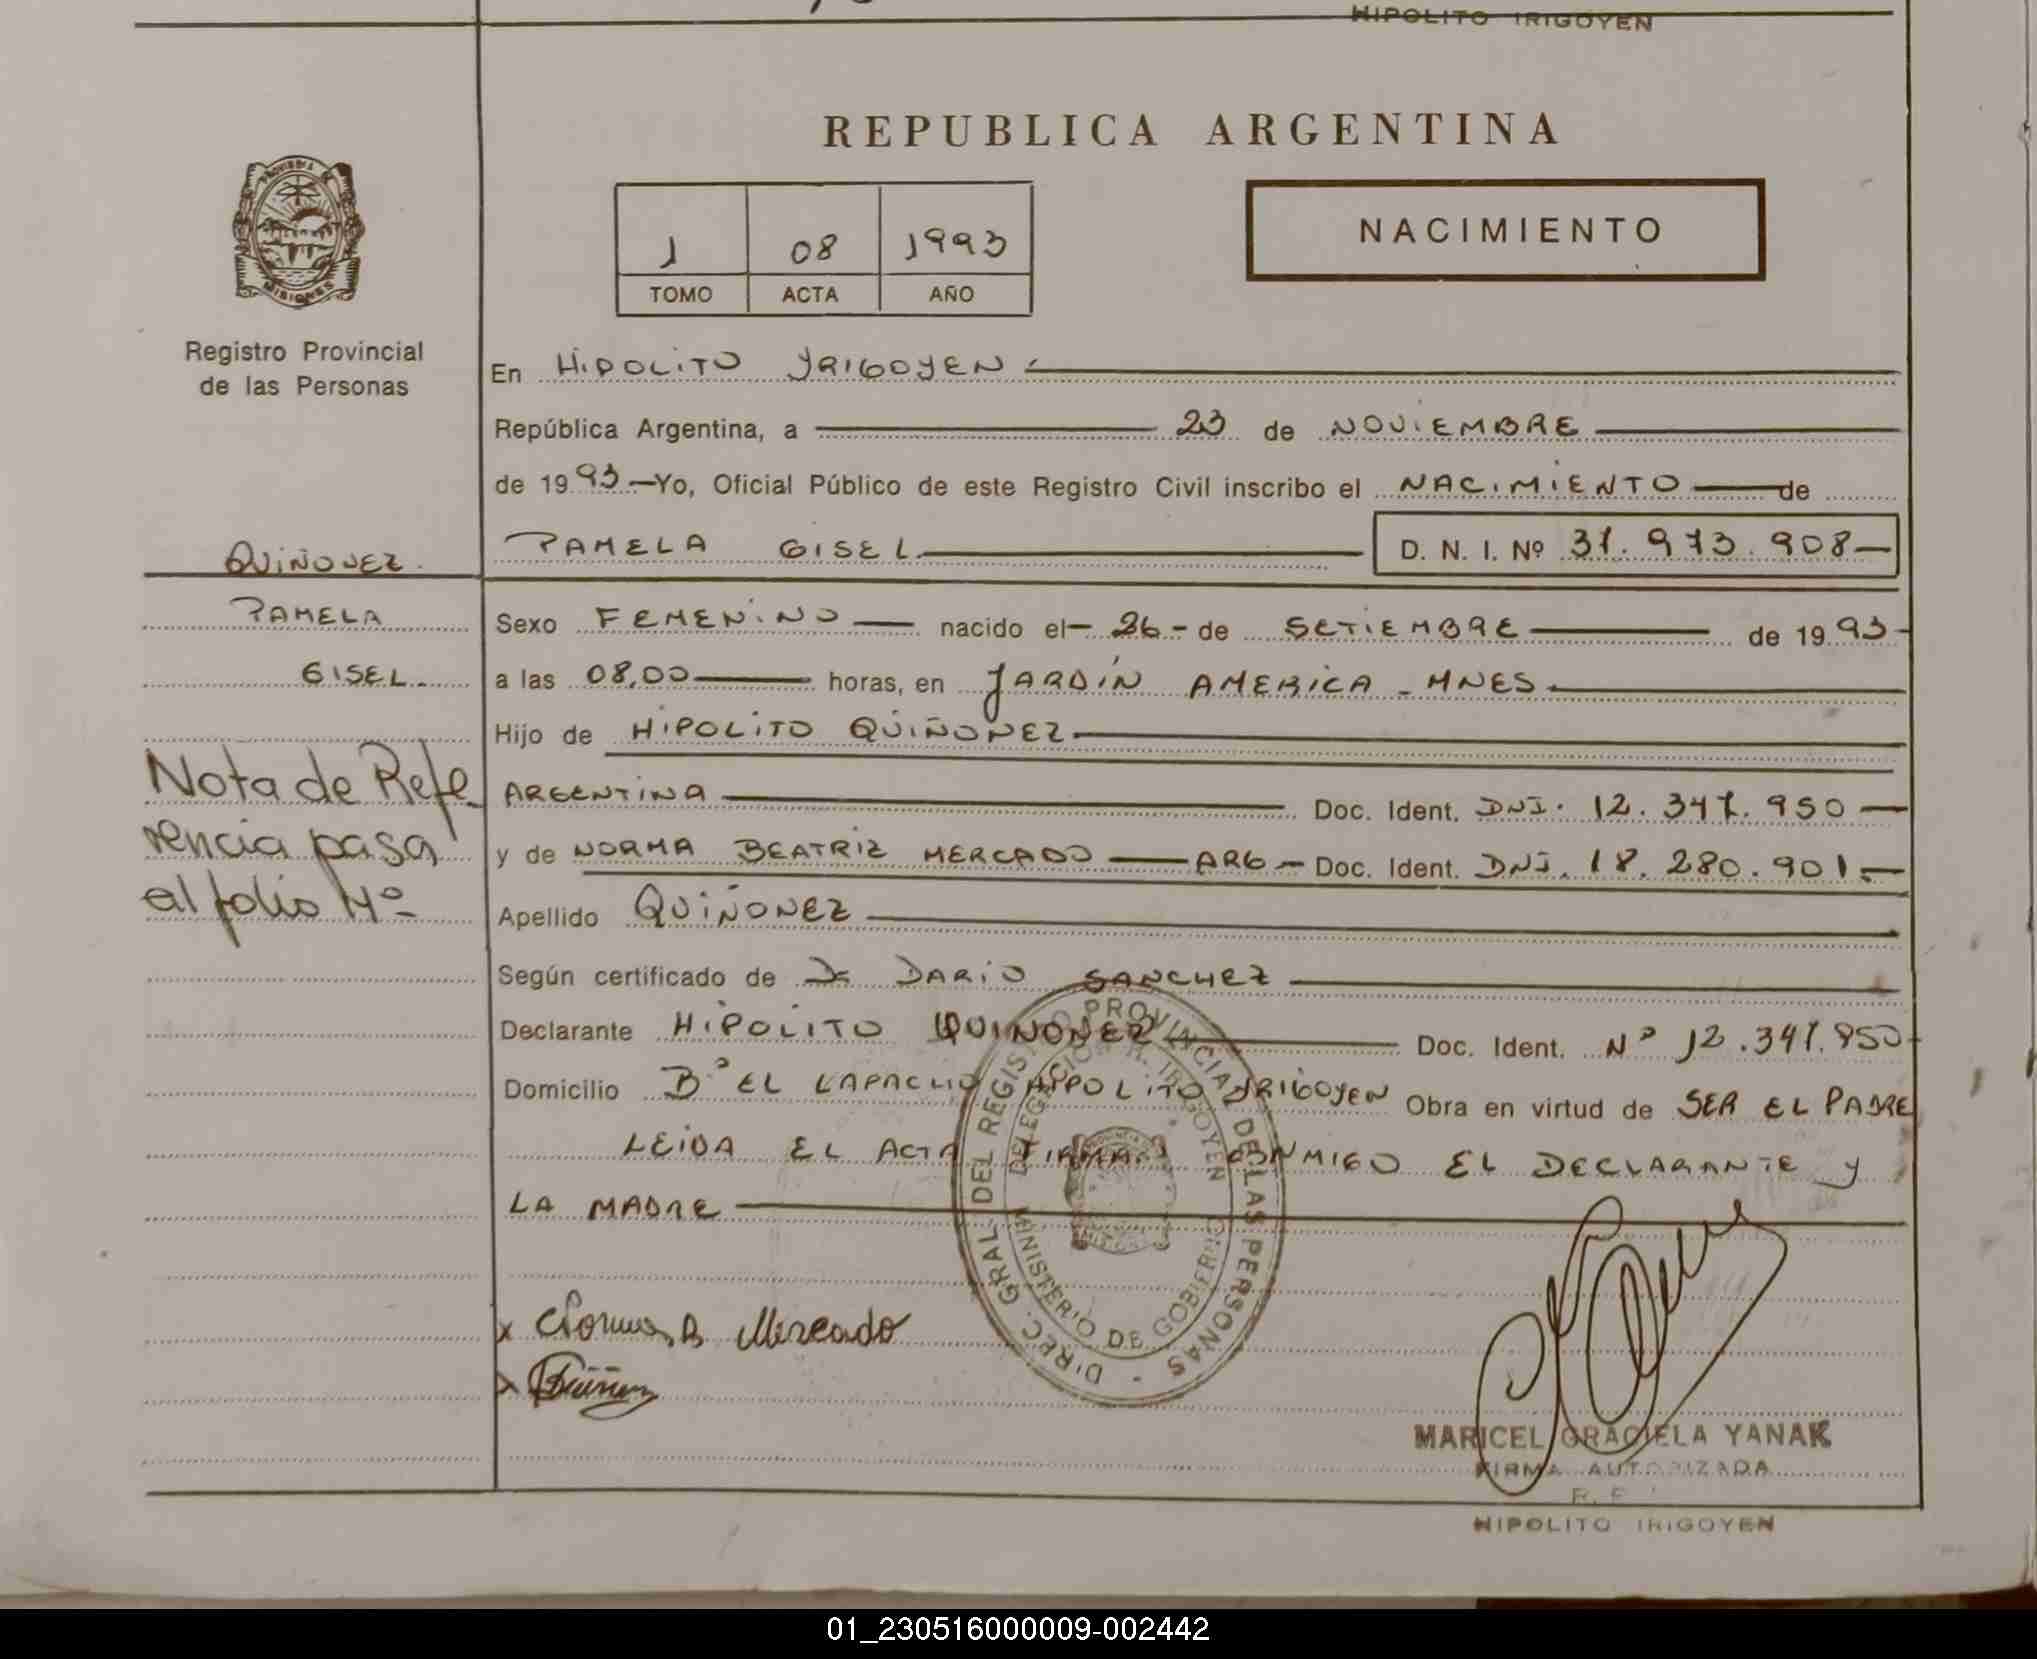 HIPOLITO IRIGOYEN
REPUBLICA ARGENTINA
1 08 1993
TOMO ACTA AÑO
NACIMIENTO
PROVINCIA DE MISIONES
Registro Provincial
de las Personas
En HIPOLITO YRIGOYEN
República Argentina, a 23 de NOVIEMBRE
de 1993.—Yo, Oficial Público de este Registro Civil inscribo el NACIMIENTO de
PAMELA GISEL D. N. I. Nº 31.973.908
QUIÑONEZ
PAMELA
GISEL
Nota de Refe
rencia pasa
al folio Nº
Sexo FEMENINO nacido el 26 de SETIEMBRE de 1993
a las 08,00 horas, en JARDIN AMERICA - MNES
Hijo de HIPOLITO QUIÑONEZ
ARGENTINA Doc. Ident. DNI. 12.347.950
y de NORMA BEATRIZ MERCADO ARG Doc. Ident. DNI. 18.280.901
Apellido QUIÑONEZ
Según certificado de Dr DARIO SANCHEZ
Declarante HIPOLITO QUIÑONEZ Doc. Ident. Nº 12.347.950
Domicilio Bº EL LAPACHO HIPOLITO YRIGOYEN Obra en virtud de SER EL PADRE
LEIDA EL ACTA FIRMAN CONMIGO EL DECLARANTE Y
LA MADRE
DIREC. GRAL. DEL REGISTRO PROVINCIAL DE LAS PERSONAS
DELEGACION H. IRIGOYEN
MINISTERIO DE GOBIERNO
x Norma B Mercado
x
MARICEL GRACIELA YANAK
FIRMA AUTORIZADA
HIPOLITO IRIGOYEN
01_230516000009-002442